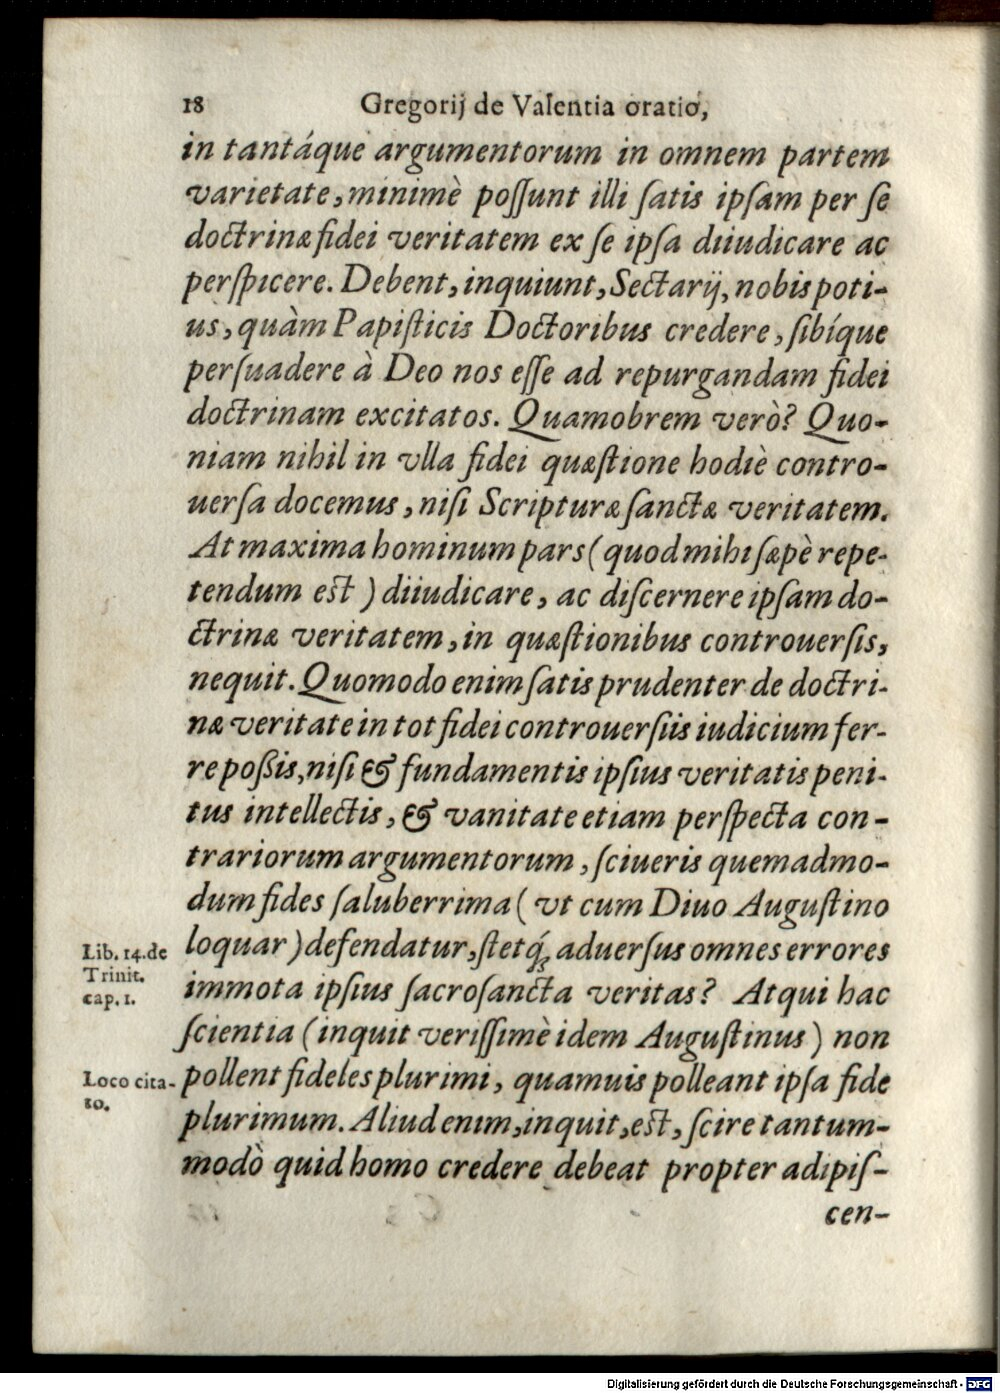 18 Gregorij de Valentia oratio,
in tantáque argumentorum in omnem partem
varietate, minimè poſſunt illi ſatis ipſam per ſe
doctrinæ fidei veritatem ex ſe ipſa diiudicare ac
perſpicere. Debent, inquiunt, Sectarij, nobis poti-
us, quàm Papiſticis Doctoribus credere, ſibíque
perſuadere à Deo nos eſſe ad repurgandam fidei
doctrinam excitatos. Quamobrem verò? Quo-
niam nihil in vlla fidei quæſtione hodiè contro-
uerſa docemus, niſi Scripturæ ſanctæ veritatem.
At maxima hominum pars (quod mihi ſæpè repe-
tendum est) diiudicare, ac diſcernere ipſam do-
ctrinæ veritatem, in quæſtionibus controuerſis,
nequit. Quomodo enim ſatis prudenter de doctri-
næ veritate in tot fidei controuerſiis iudicium fer-
re poßis, niſi & fundamentis ipſius veritatis peni-
tus intellectis, & vanitate etiam perſpecta con-
trariorum argumentorum, ſciueris quemadmo-
dum fides ſaluberrima (vt cum Diuo Auguſtino
Lib. 14. de
Trinit.
cap. 1.
loquar) defendatur, ſtetq́; aduerſus omnes errores
immota ipſius ſacroſancta veritas? Atqui hac
ſcientia (inquit veriſſimè idem Auguſtinus) non
Loco cita-
to.
pollent fideles plurimi, quamuis polleant ipſa fide
plurimum. Aliud enim, inquit, est, ſcire tantum-
modò quid homo credere debeat propter adipiſ-
cen-
Digitalisierung gefördert durch die Deutsche Forschungsgemeinschaft - DFG